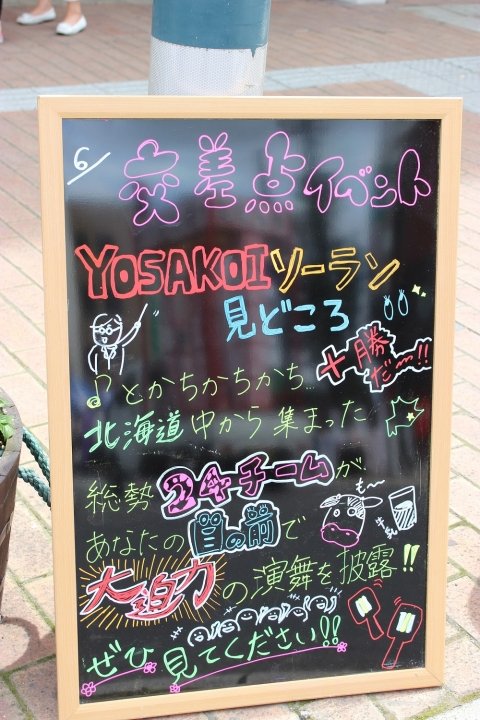 6/
交差点イベント
YOSAKOIソーラン
見どころ
♪とかちかちかち… 十勝だ〜!!
北海道中から集まった
総勢24チームが
あなたの目の前で
も〜
牛乳
大迫力の演舞を披露!!
ぜひ見てください!!